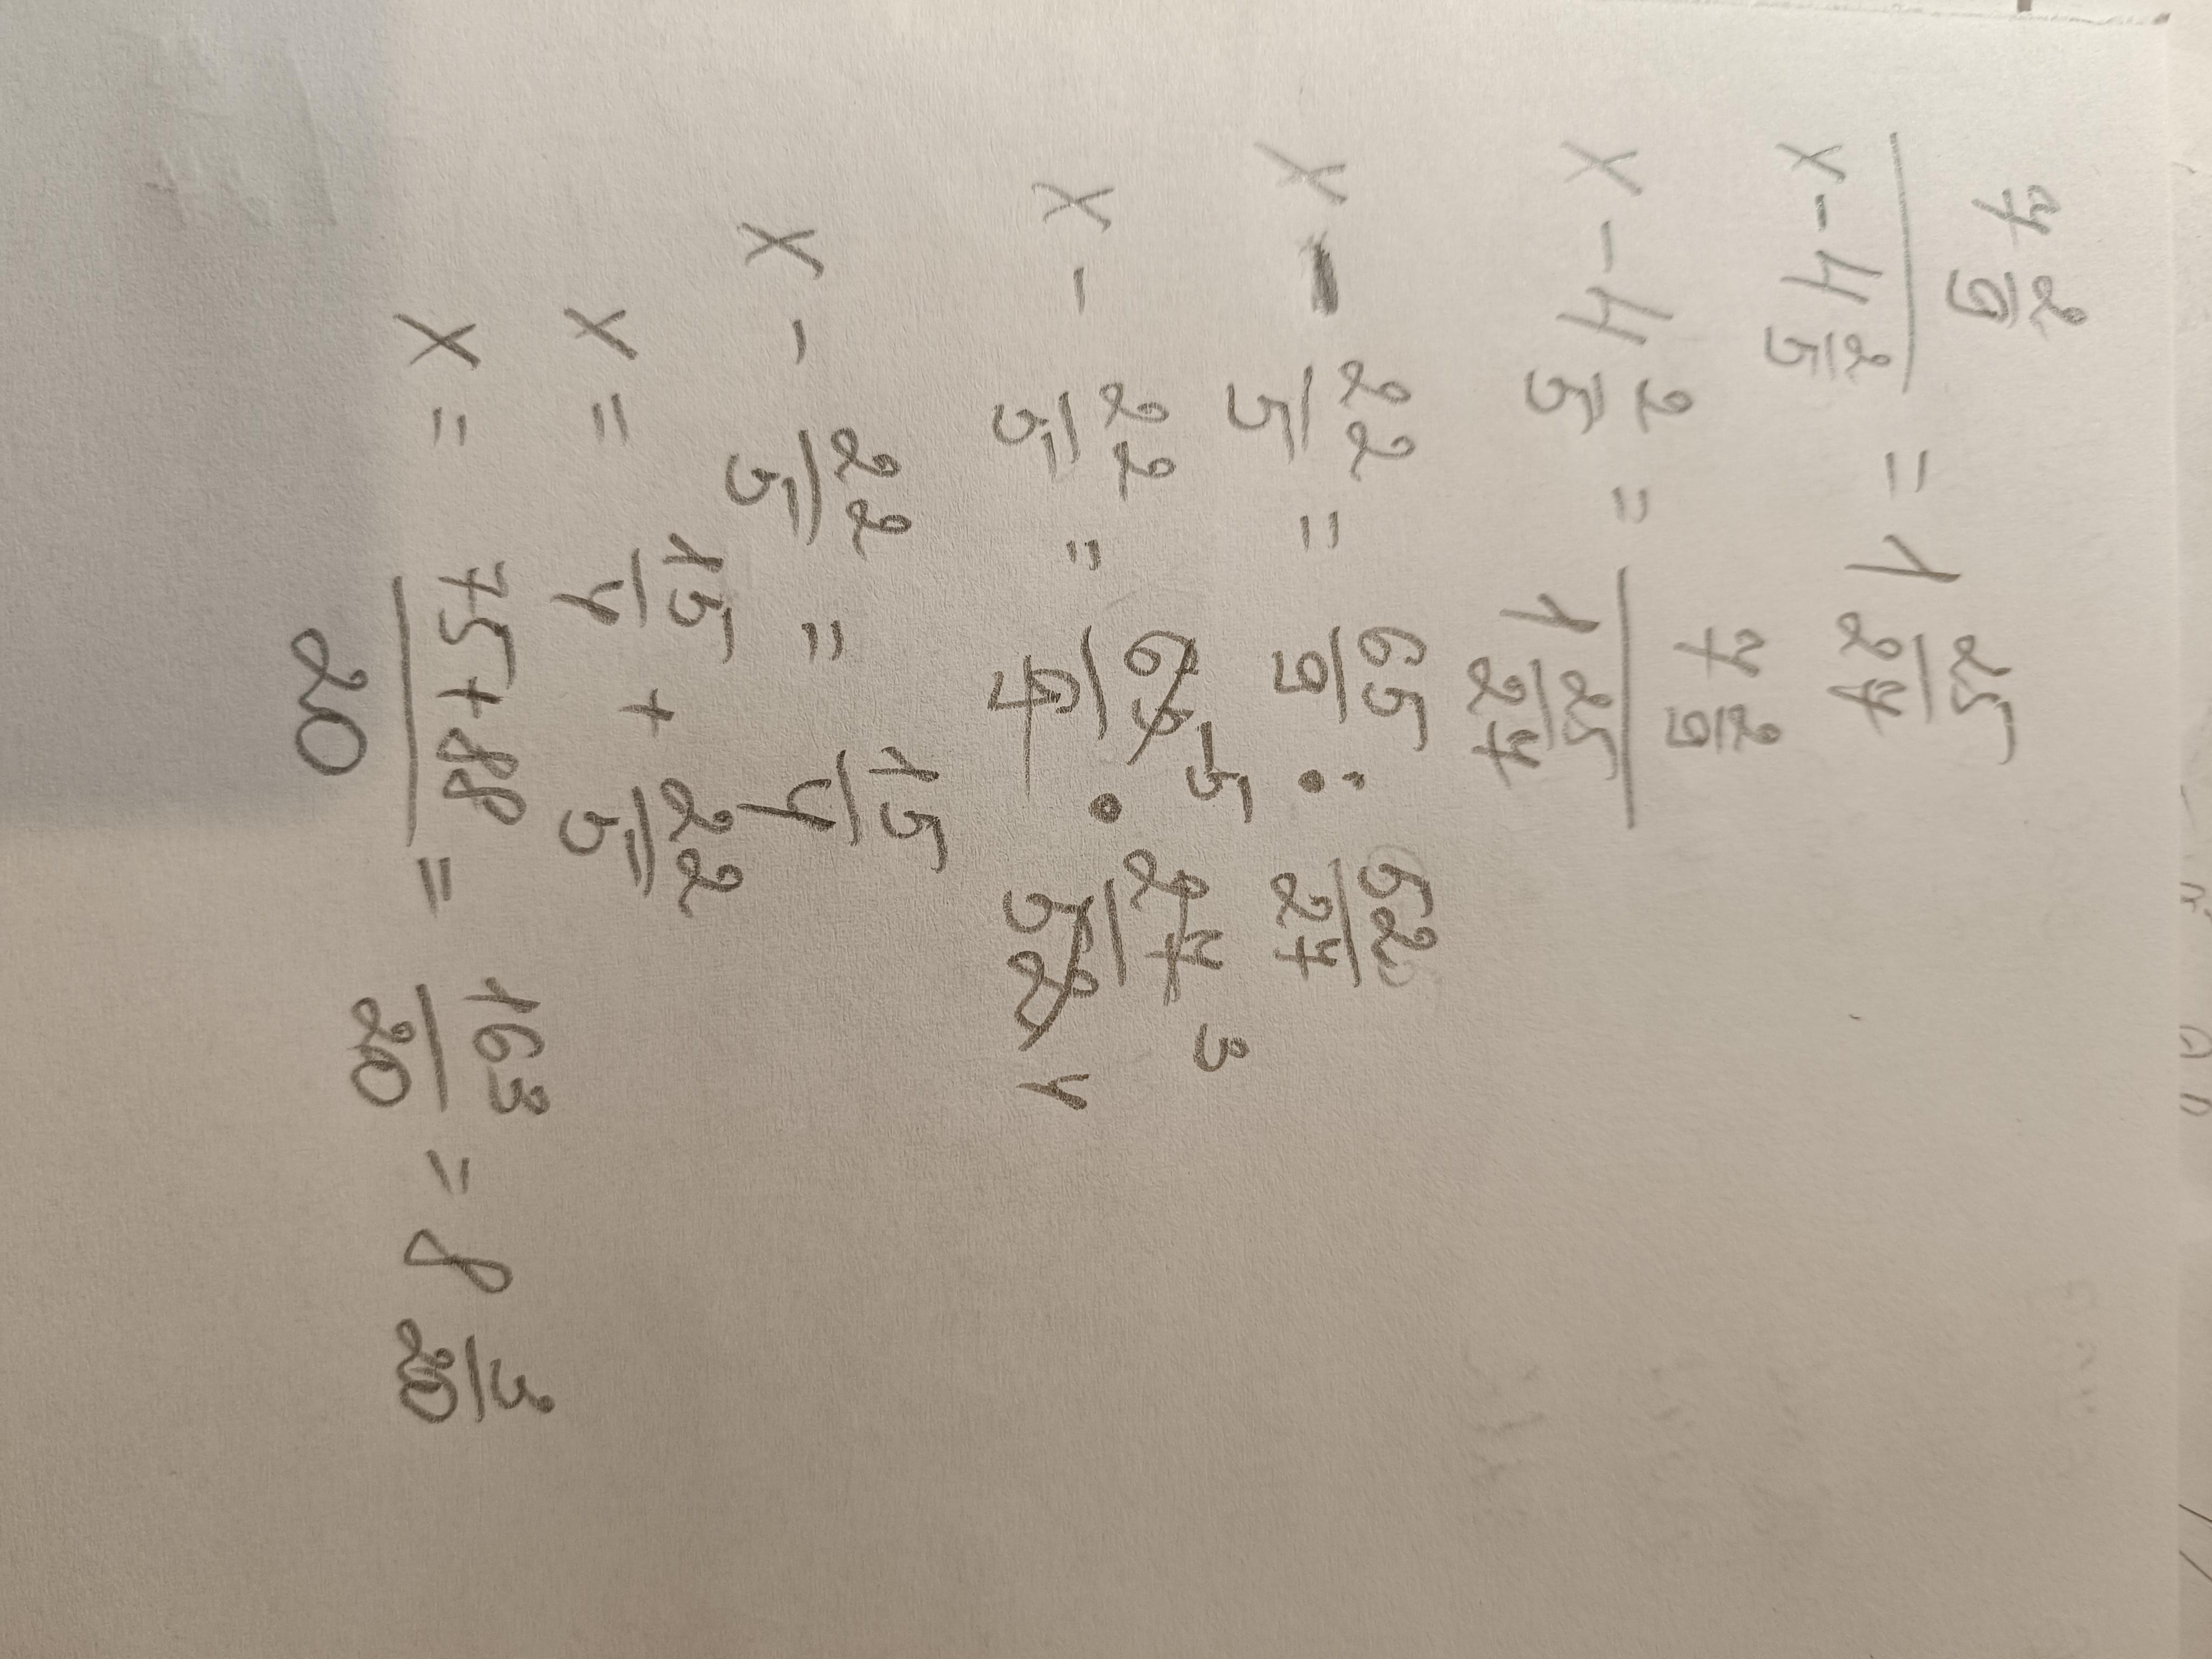 7 2/9 / (x - 4 2/5) = 1 25/27
x - 4 2/5 = 7 2/9 / 1 25/27
x - 22/5 = 65/9 : 52/27
x - 22/5 = 65/9 · 27/52 5 3 4
x - 22/5 = 15/4
x = 15/4 + 22/5
x = (75+88)/20 = 163/20 = 8 3/20